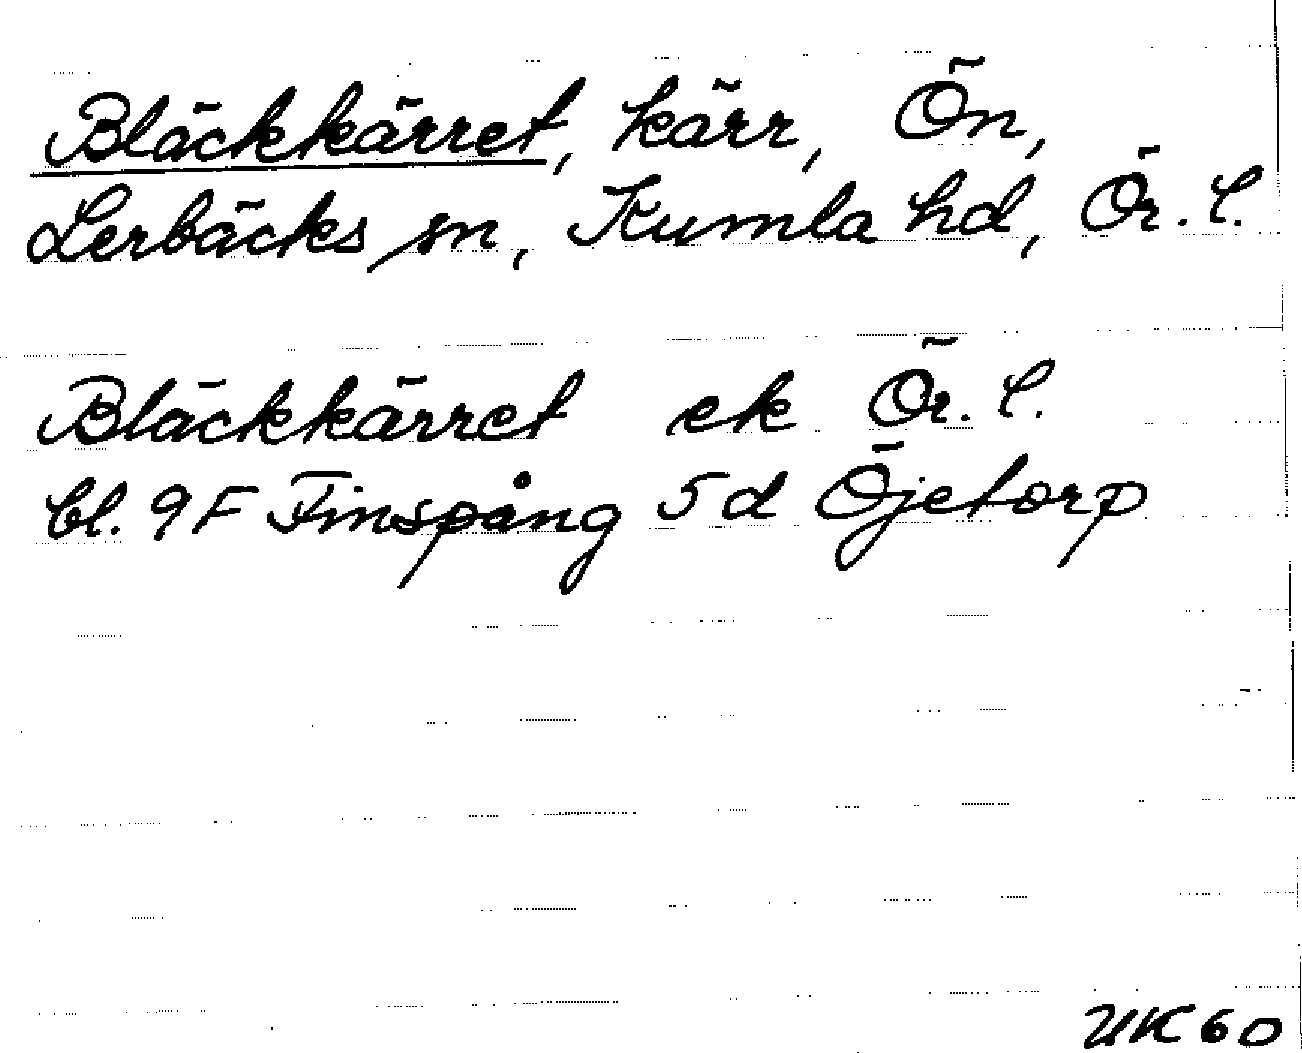 Bläckkärret, kärr, Ön,
Lerbäcks sn, Kumla hd, Ör. l.
Bläckkärret ek Ör. l.
bl. 9F Finspång 5d Öjetorp
UK60